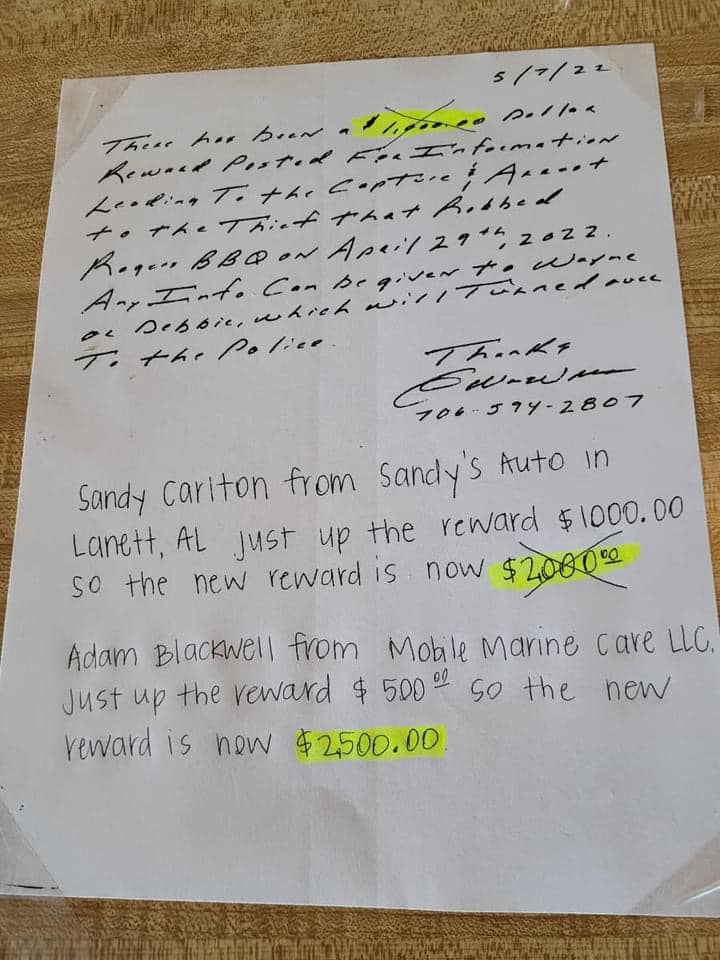 5/7/22
There has been a $1,000.00 Dollar
Reward Posted For Information
Leading To the Capture & Arrest
to the Thief that Robbed
Rogers BBQ on April 29th, 2022.
Any Info. Can be given to Wayne
or Debbie, which will Turned over
To the Police.
Thanks
706-594-2807
Sandy Carlton from Sandy's Auto in
Lanett, AL just up the reward $1000.00
so the new reward is now $2,000.00
Adam Blackwell from Mobile Marine Care LLC.
Just up the reward $500.00 so the new
reward is now $2,500.00